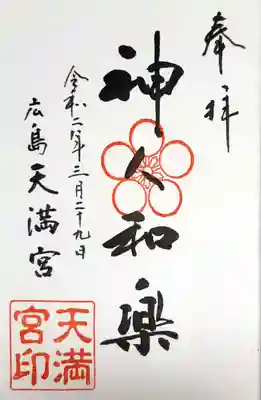 奉拝
神人和楽
令和二年三月二十九日
広島天満宮
天満
宮印